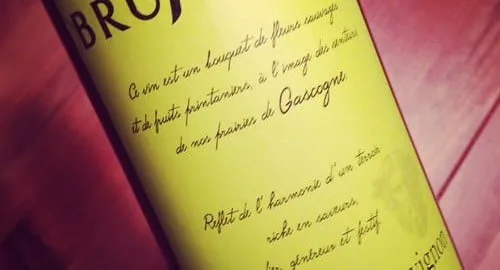 BRU
Ce vin est un bouquet de fleurs sauvages
et de fruits printaniers, à l'image des senteurs
de nos prairies de Gascogne.
Reflet de l'harmonie d'un terroir
riche en saveurs,
généreux et festif.